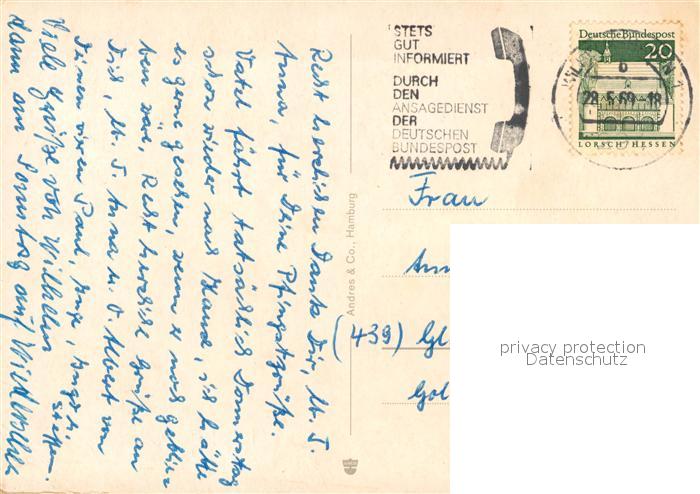 STETS
GUT
INFORMIERT
DURCH
DEN
ANSAGEDIENST
DER
DEUTSCHEN
BUNDESPOST
Deutsche Bundespost
20
b
28.5.69-18
LORSCH/HESSEN
Recht herzlichen Dank Dir, lb. T.
Anna, für Deine Pfingstgrüße.
Vater fährt tatsächlich Donnerstag
schon wieder nach Hause, ich hätte
es gerne gesehen, wenn er noch geblie
ben wäre. Recht herzliche Grüße an
Dich, lb. T. Anna u. O. Albert von
Deinen vieren Paul, Inge,
Viele Grüße von Wilhelm
dann am Sonntag auf Wiedersehen
Andres & Co., Hamburg
Frau
(439) Gl
privacy protection
Datenschutz